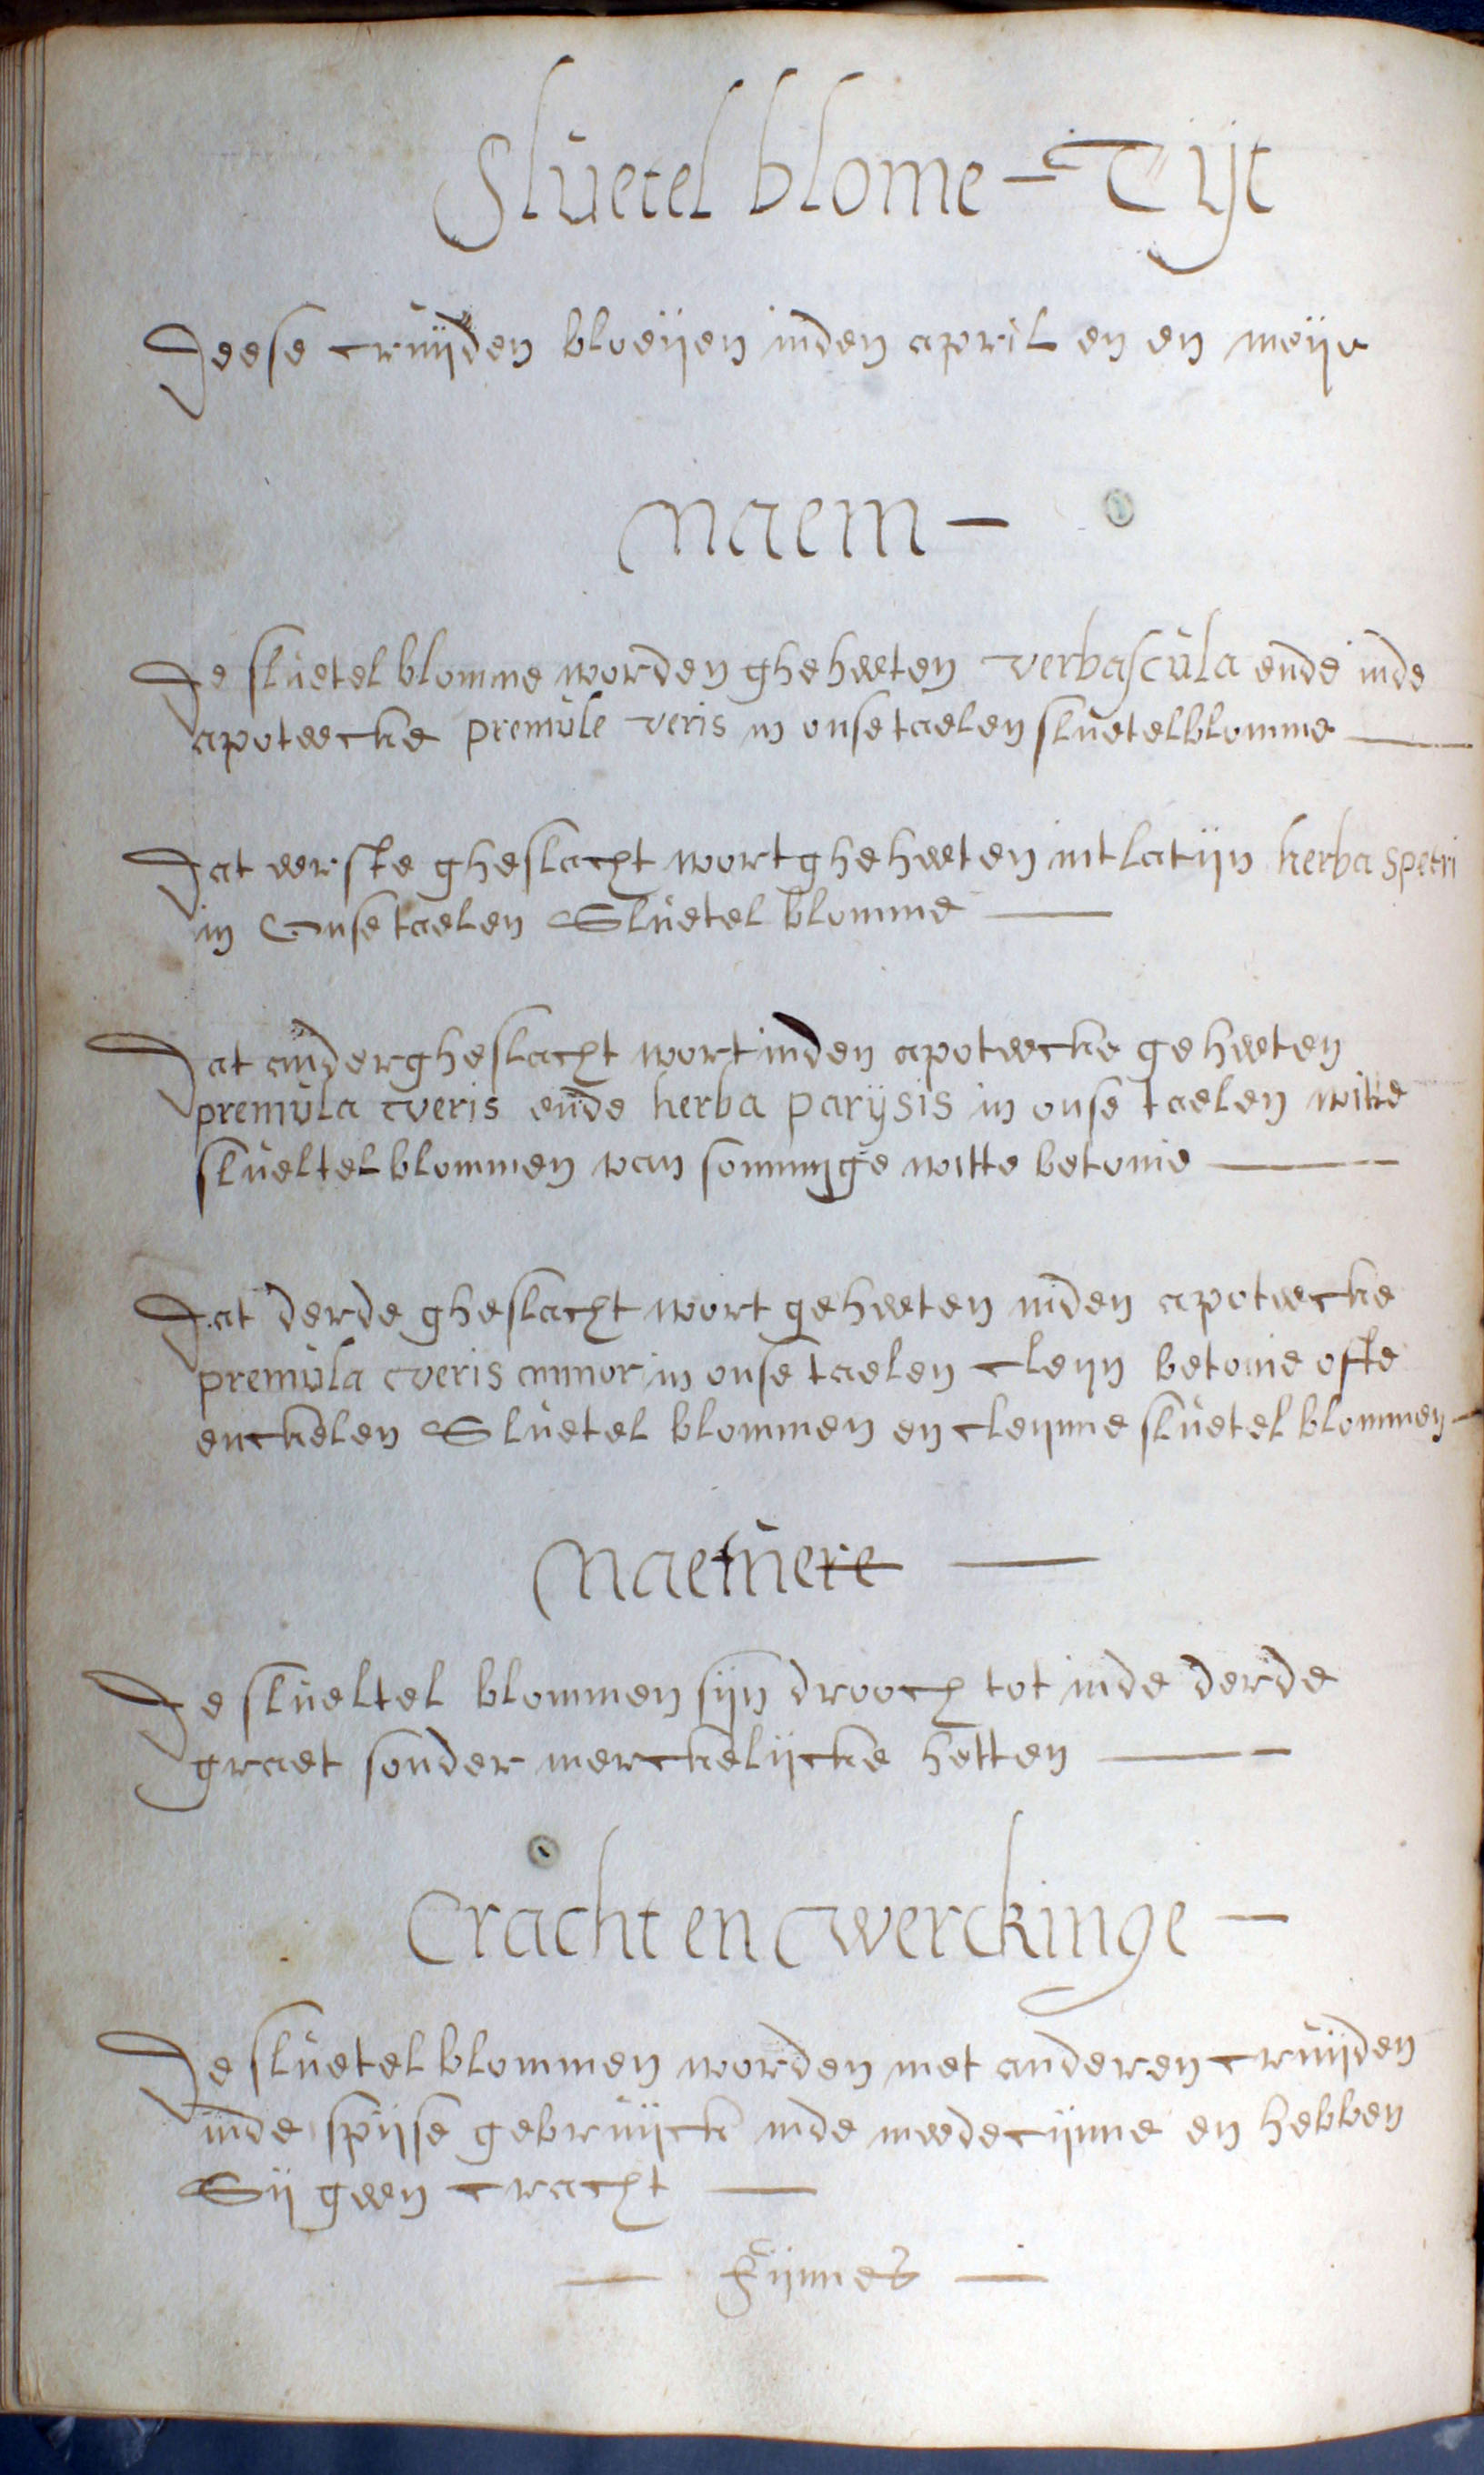 Sluetel blome - Tijt
Deese cruijden bloeijen inden april en en meije
Naem -
De sluetel blomme worden gheheeten verbascula ende inde
apoteecke premule veris in onse taelen sluetelblomme
Dat eerste gheslacht wort gheheeten int latijn herba spetri
in Onse taelen Sluetel blomme
Dat ander gheslacht wort inden apoteecke geheeten
premula veris ende herba parijsis in onse taelen witte
slueltel blommen van sommijge witte betonie
Dat derde gheslacht wort geheeten inden apoteecke
premula veris minor in onse taelen cleijn betonie ofte
enckelen Sluetel blommen en cleijnne sluetel blommen -
Naetuere
De slueltel blommen sijn drooch tot inde derde
graet sonder merckelijcke hetten
Cracht en werckinge -
De sluetel blommen worden met anderen cruijden
inde spijse gebruijck inde meedecijnne en hebben
Sij geen cracht
Fijnnes